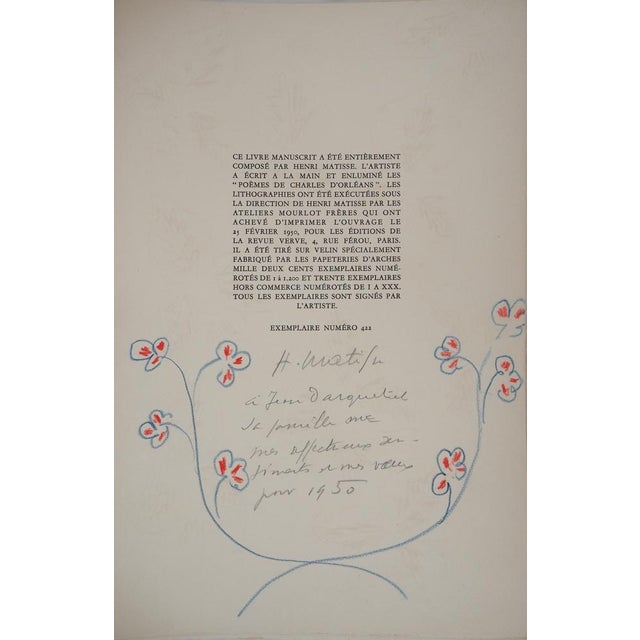 CE LIVRE MANUSCRIT A ÉTÉ ENTIÈREMENT
COMPOSÉ PAR HENRI MATISSE. L'ARTISTE
A ÉCRIT A LA MAIN ET ENLUMINÉ LES
"POÈMES DE CHARLES D'ORLÉANS". LES
LITHOGRAPHIES ONT ÉTÉ EXÉCUTÉES SOUS
LA DIRECTION DE HENRI MATISSE PAR LES
ATELIERS MOURLOT FRÈRES QUI ONT
ACHEVÉ D'IMPRIMER L'OUVRAGE LE
25 FÉVRIER 1950, POUR LES ÉDITIONS DE
LA REVUE VERVE, 4, RUE FÉROU, PARIS.
IL A ÉTÉ TIRÉ SUR VELIN SPÉCIALEMENT
FABRIQUÉ PAR LES PAPETERIES D'ARCHES
MILLE DEUX CENTS EXEMPLAIRES NUMÉ-
ROTÉS DE 1 à 1.200 ET TRENTE EXEMPLAIRES
HORS COMMERCE NUMÉROTÉS DE I A XXX.
TOUS LES EXEMPLAIRES SONT SIGNÉS PAR
L'ARTISTE.
EXEMPLAIRE NUMÉRO 422
H. Matisse
à
sa famille
mes affectueux sen-
timents et mes vœux
pour 1950